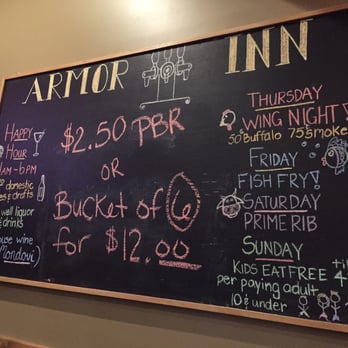 ARMOR INN
HAPPY
HOUR
AM-6PM
domestic
& crafts
well liquor
drinks
house wine
(Mondovi)
$2.50 PBR
OR
Bucket of 6
for $12.00
THURSDAY
WING NIGHT!
50¢ Buffalo 75¢ smoke
FRIDAY
FISH FRY!
SATURDAY
PRIME RIB
SUNDAY
KIDS EAT FREE
per paying adult
10 & under